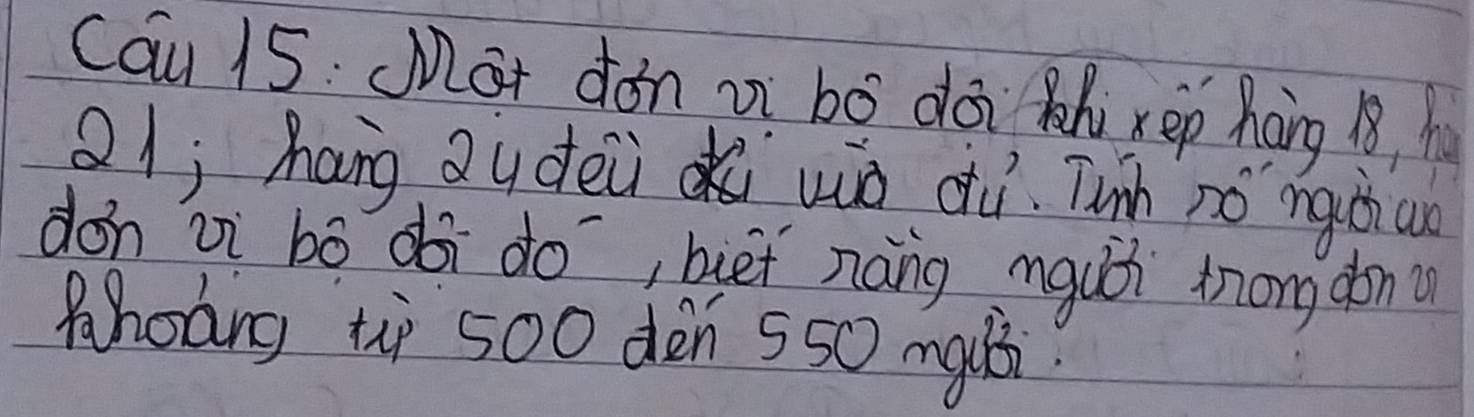 Câu 15: Một đơn vị bộ đội khi xếp hàng 18,
21; hàng 24 đều vừa đủ. Tính số người của
đơn vị bộ đội đó, biết rằng người trong đơn vị
khoảng từ 500 đến 550 người.